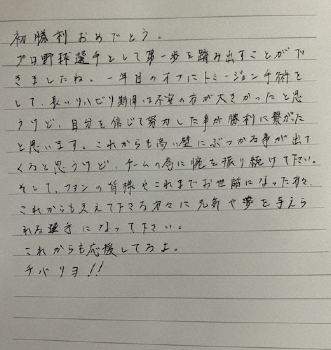 初勝利おめでとう。
プロ野球選手として第一歩を踏み出すことがで
きましたね。一年目のオフにトミージョン手術を
して、長いリハビリ期間は不安の方が大きかったと思
うけど、自分を信じて努力した事が勝利に繋がった
と思います。これからも高い壁にぶつかる事が出て
くると思うけど、チームの為に腕を振り続けて下さい。
そして、ファンの皆様やこれまでお世話になった方々、
これからも支えて下さる方々に元気や夢を与えら
れる選手になって下さい。
これからも応援してるよ。
チバリヨ!!